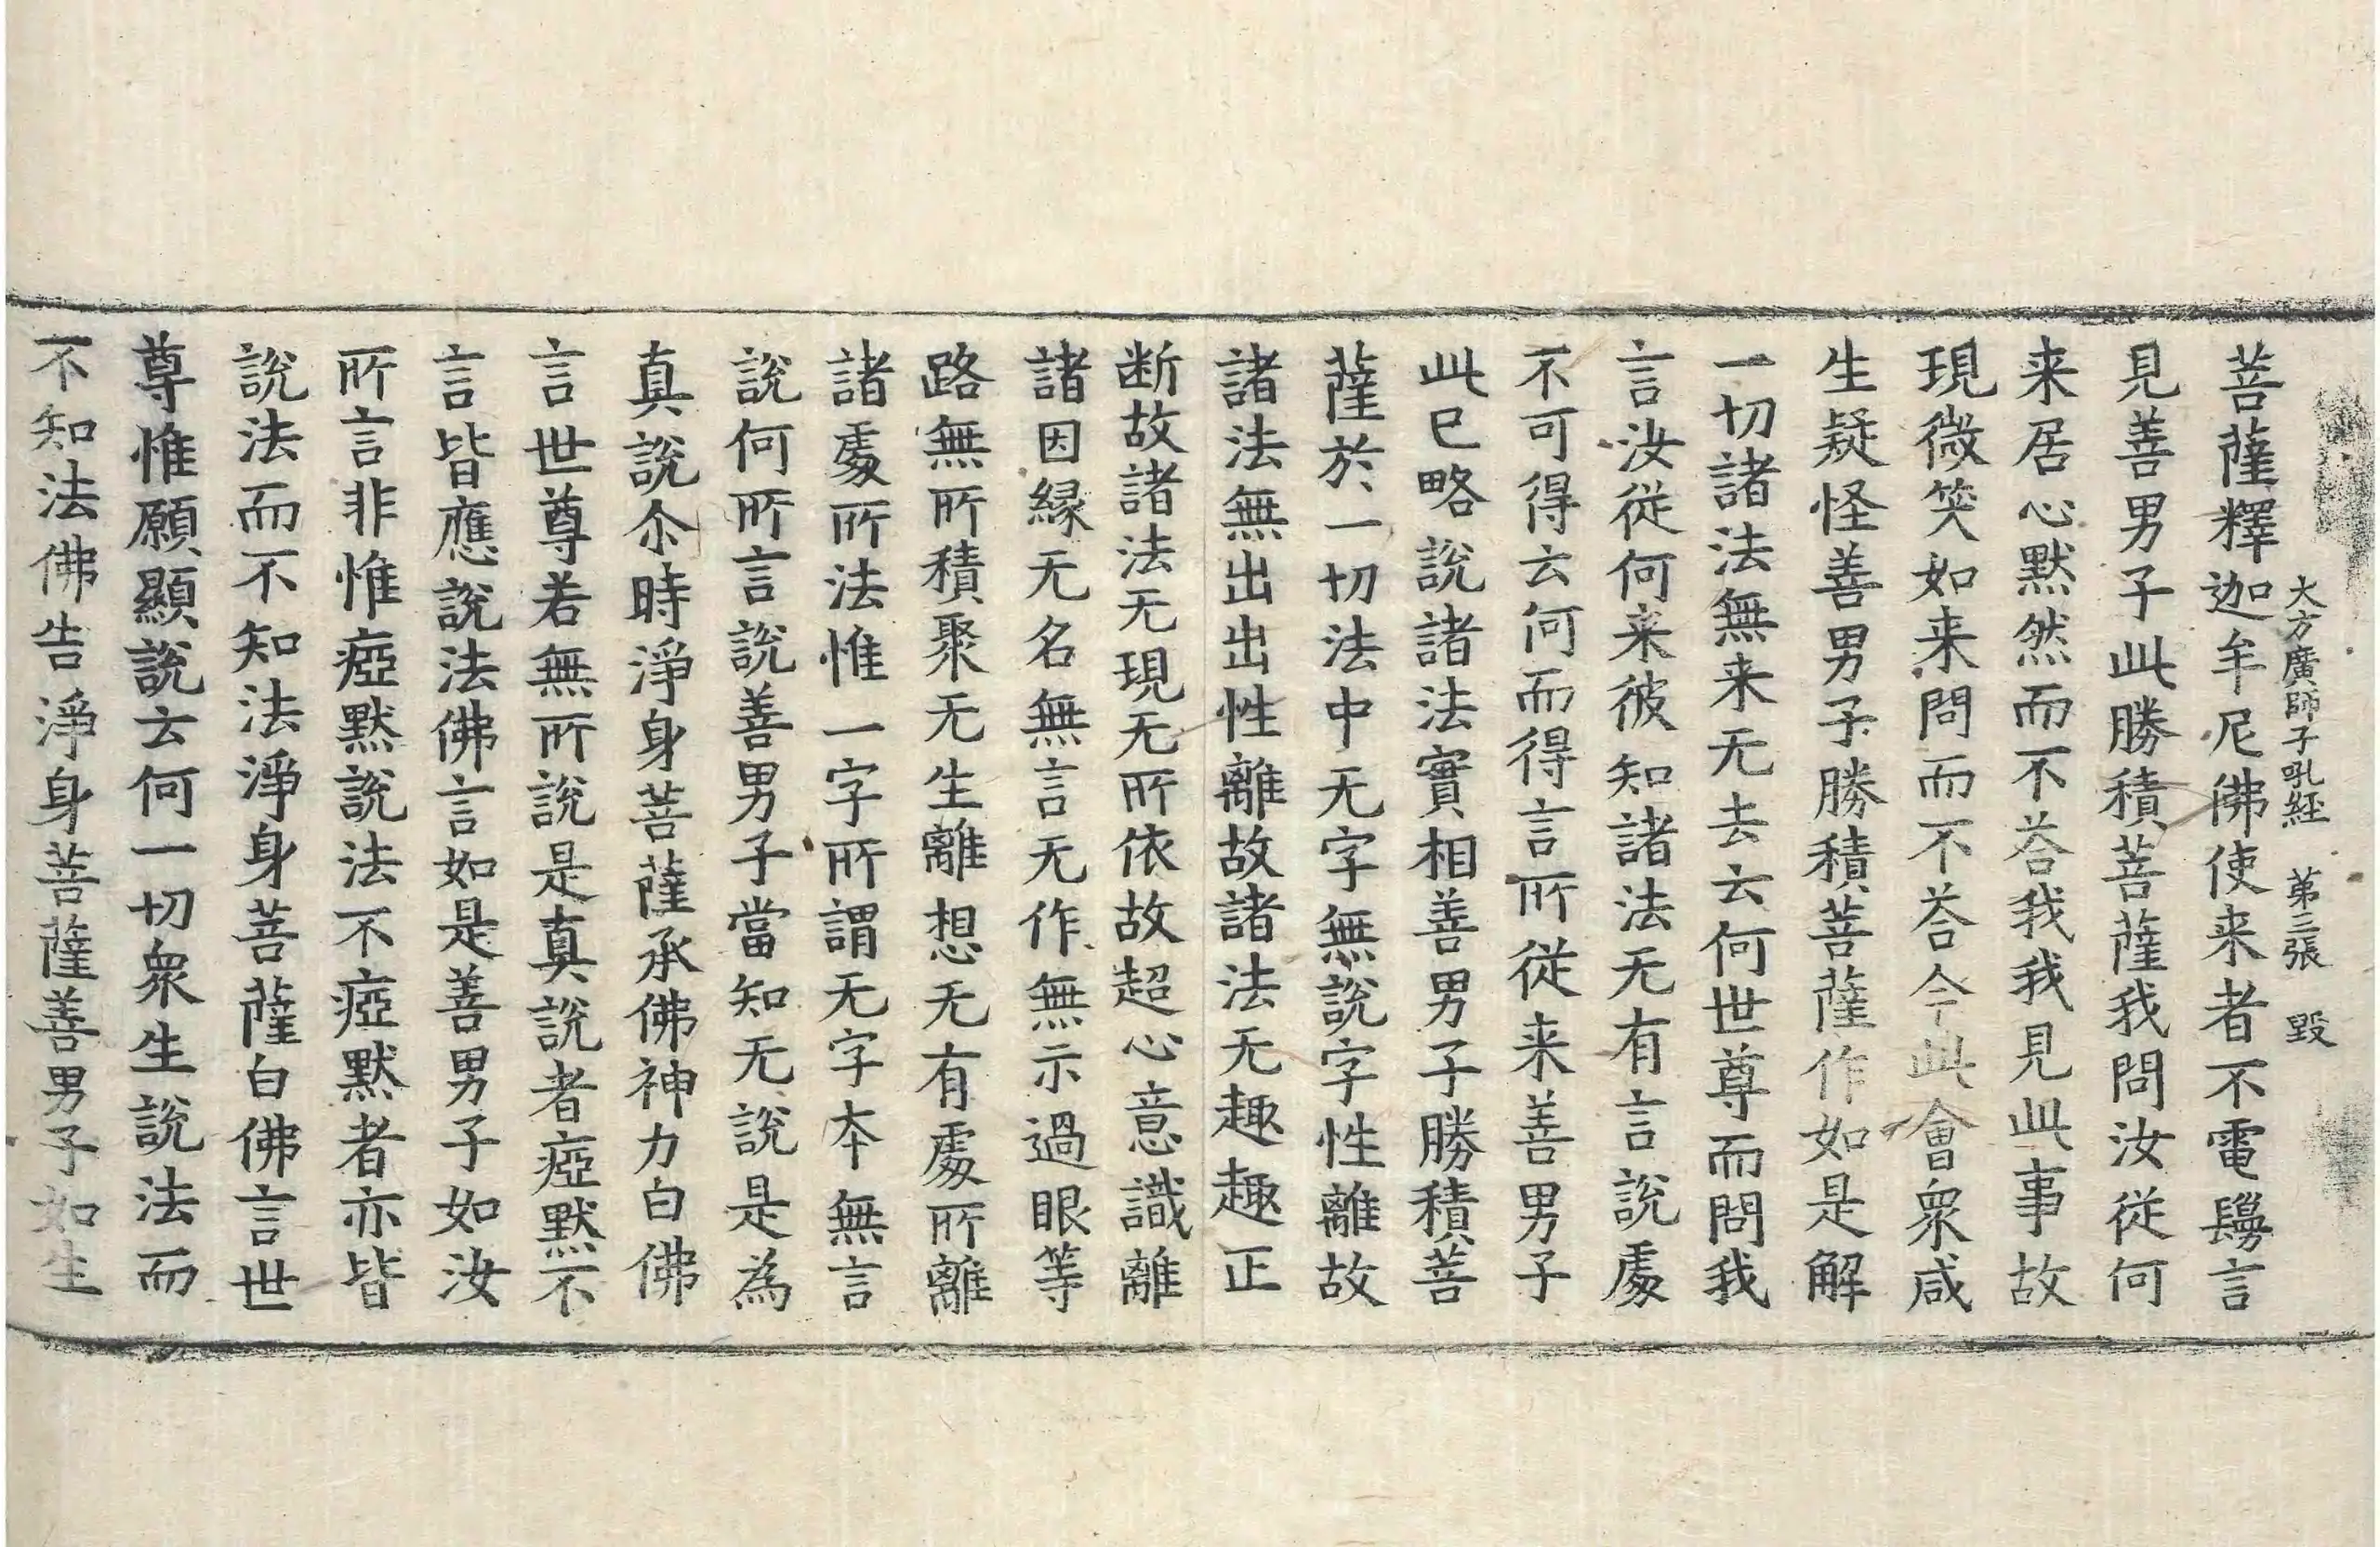 大方廣師子吼経 第三張 毀
菩薩釋迦牟尼佛使来者不電鬘言
見善男子此勝積菩薩我問汝從何
来居心默然而不荅我我見此事故
現微笑如来問而不荅今此會衆咸
生疑怪善男子勝積菩薩作如是解
一切諸法無来无去云何世尊而問我
言汝從何来彼知諸法无有言說處
不可得云何而得言所從来善男子
此已略說諸法實相善男子勝積菩
薩於一切法中无字無說字性離故
諸法無出出性離故諸法无趣趣正
断故諸法无現无所依故超心意識離
諸因縁无名無言无作無示過眼等
路無所積聚无生離想无有處所離
諸處所法惟一字所謂无字本無言
說何所言說善男子當知无說是為
真說尒時淨身菩薩承佛神力白佛
言世尊若無所說是真說者瘂默不
言皆應說法佛言如是善男子如汝
所言非惟瘂默說法不瘂默者亦皆
說法而不知法淨身菩薩白佛言世
尊惟願顯說云何一切衆生說法而
不知法佛告淨身菩薩善男子如生